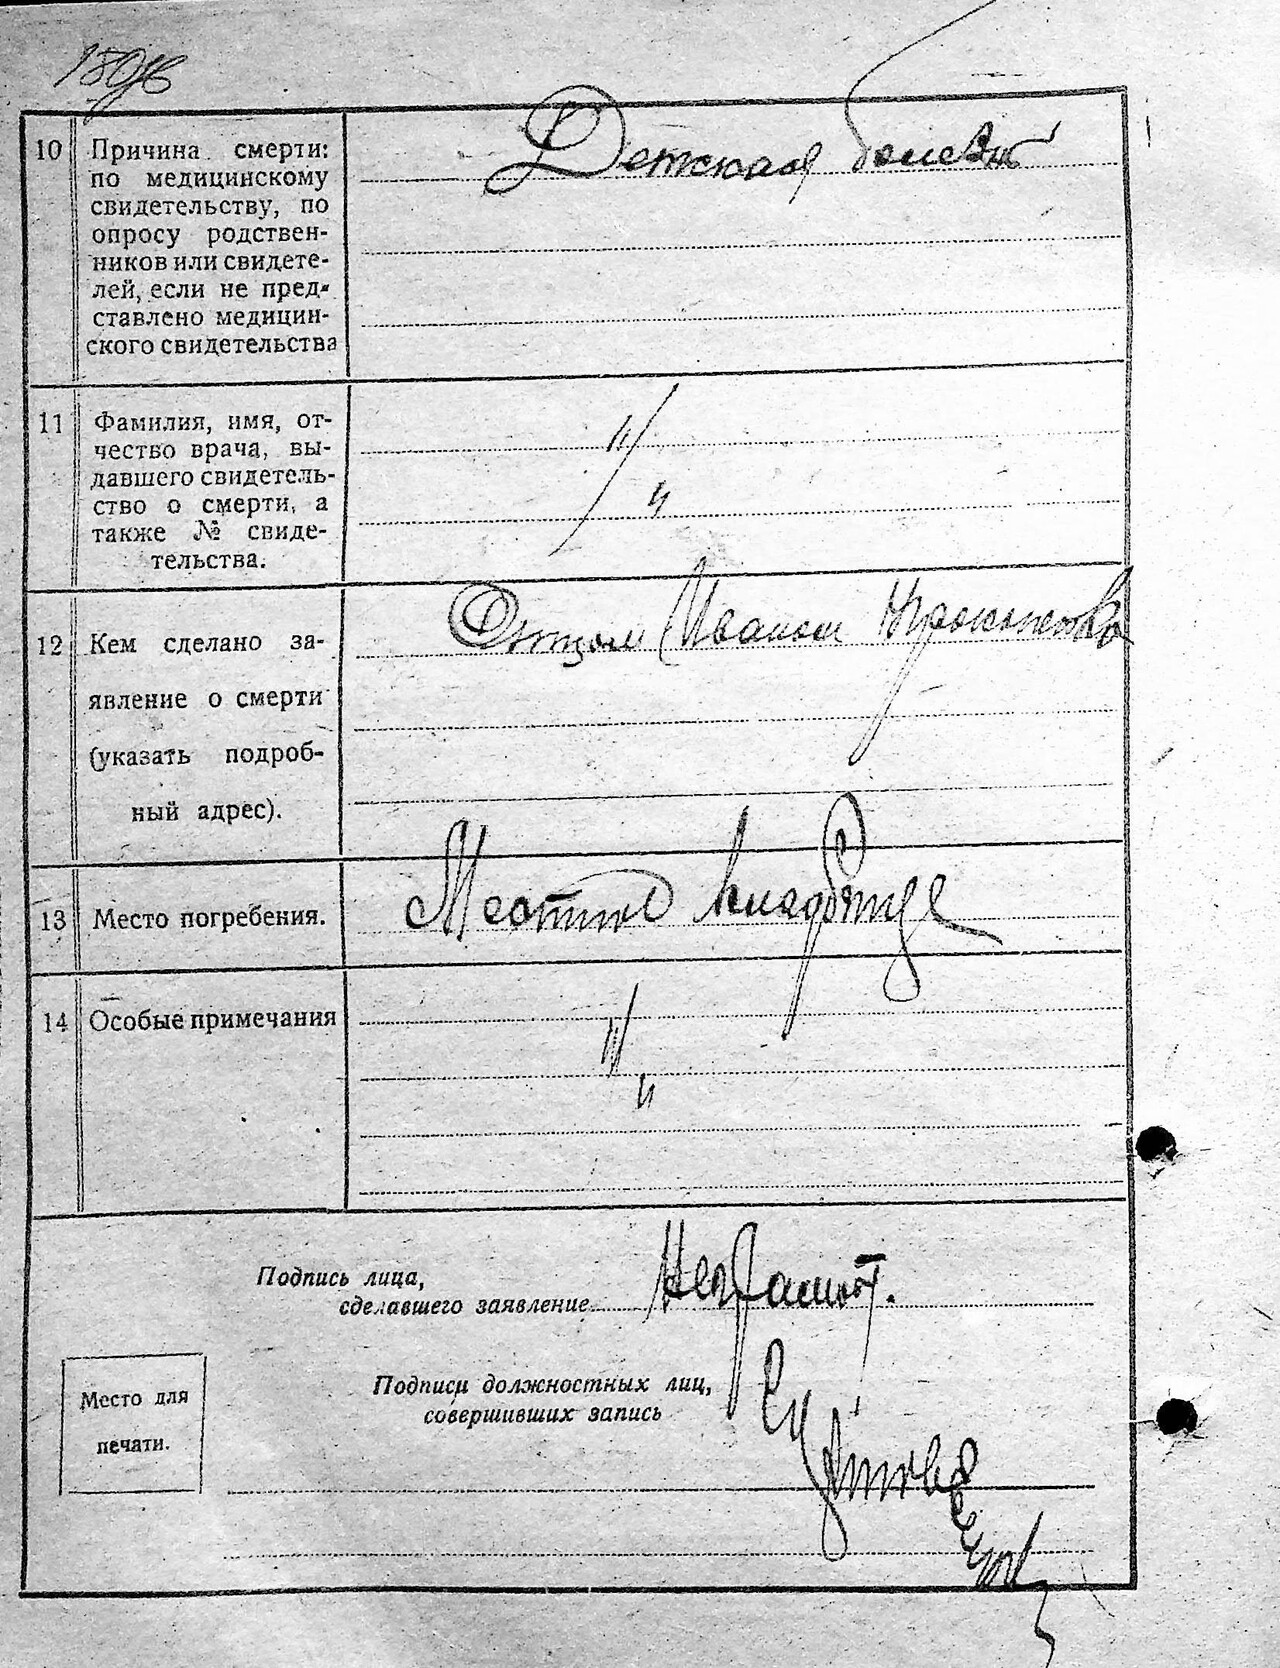 10 Причина смерти:
по медицинскому
свидетельству, по
опросу родствен-
ников или свидете-
лей, если не пред-
ставлено медицин-
ского свидетельства
Детская болезнь
11 Фамилия, имя, от-
чество врача, вы-
давшего свидетель-
ство о смерти, а
также № свиде-
тельства.
"/
"
12 Кем сделано за-
явление о смерти
(указать подроб-
ный адрес).
Отцом Иваном
13 Место погребения.
Местное кладбище
14 Особые примечания
"/
"
Подпись лица,
сделавшего заявление
Неграмот.
Подписи должностных лиц,
совершивших запись
Место для
печати.